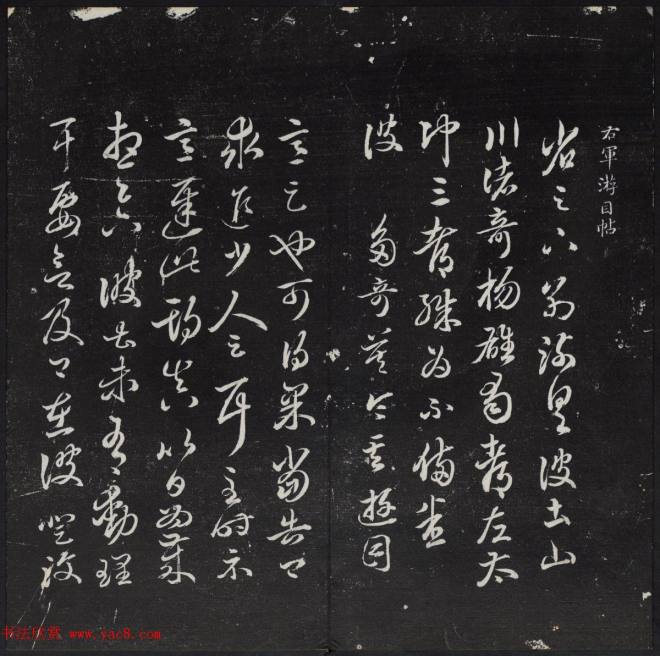 右軍游目帖
省足下別疏具彼土山
川諸奇楊雄蜀都左太
冲三都殊為不備悉
彼 多奇益令其遊目
意足也可得果當告卿
求迎少人足耳至時示
意遲此期真以日為歲
想足下 彼土未有動理
耳要欲及卿在彼登汶
书法欣赏 www.yac8.com